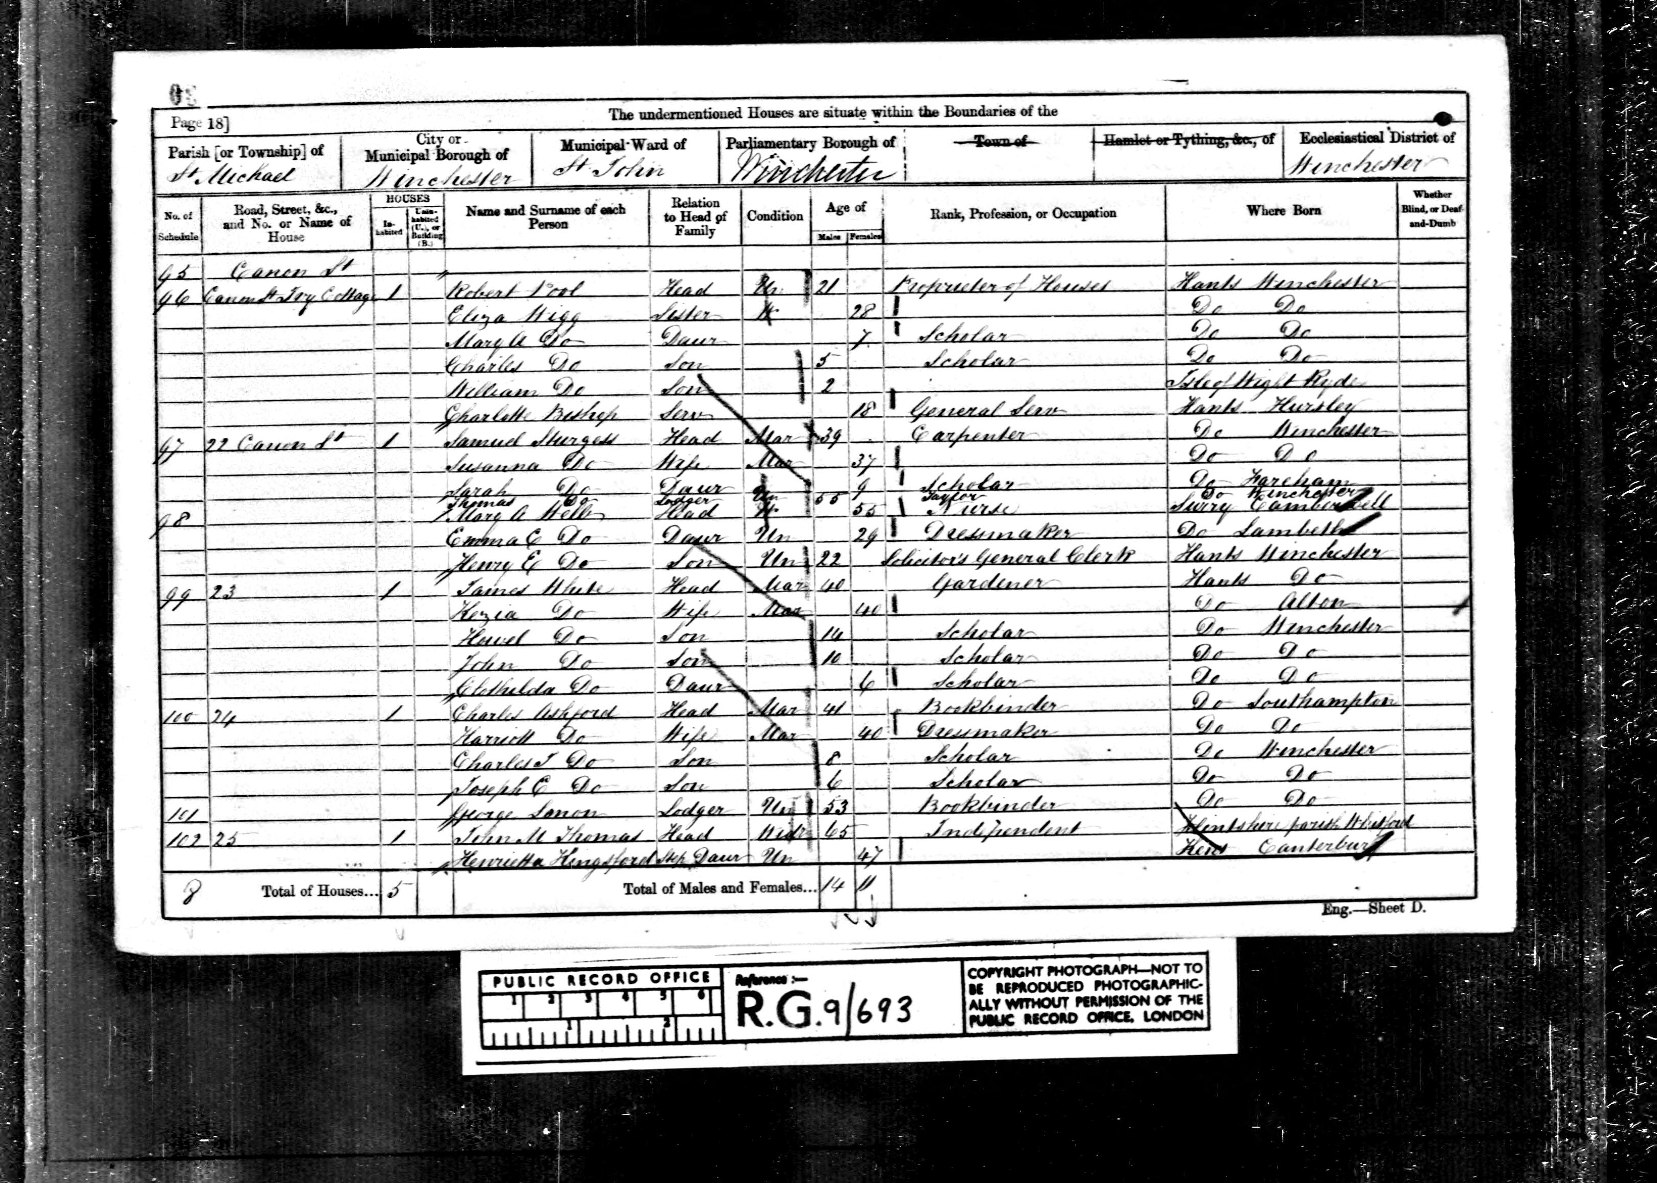 The undermentioned Houses are situate within the Boundaries of the
Page 18]
Parish [or Township] of St. Michael
City or Municipal Borough of Winchester
Municipal Ward of St. John
Parliamentary Borough of Winchester
Town of
Hamlet or Tything, &c., of
Ecclesiastical District of Winchester
No. of Schedule
Road, Street, &c., and No. or Name of House
HOUSES
In-habited
Unin-habited (U.), or Building (B.)
Name and Surname of each Person
Relation to Head of Family
Condition
Age of
Males
Females
Rank, Profession, or Occupation
Where Born
Whether Blind, or Deaf-and-Dumb
95 Canon St
96 Canon St Ivy Cottage 1 Robert Pool Head Un 21 Proprieter of Houses Hants Winchester
Eliza Wigg Sister W 28 Do Do
Mary A Do Daur 7 Scholar Do Do
Charles Do Son 5 Scholar Do Do
William Do Son 2 Isle of Wight Ryde
Charlotte Bishop Serv 18 General Serv Hants Hursley
97 22 Canon St 1 Samuel Sturgess Head Mar 39 Carpenter Do Winchester
Susanna Do Wife Mar 37 Do Do
Sarah Do Daur 9 Scholar Do Fareham
Thomas Do Lodger Un 55 Taylor Do Winchester
98 Mary A Wells Head W 55 Nurse Surry Camberwell
Emma E Do Daur Un 29 Dressmaker Do Lambeth
Henry E Do Son Un 22 Solicitor's General Clerk Hants Winchester
99 23 1 James White Head Mar 40 Gardener Hants Do
Kezia Do Wife Mar 40 Do Alton
Do Son 14 Scholar Do Winchester
John Do Son 10 Scholar Do Do
Clothilda Do Daur 6 Scholar Do Do
100 24 1 Charles Ashford Head Mar 41 Bookbinder Do Southampton
Harriott Do Wife Mar 40 Dressmaker Do Do
Charles J Do Son 8 Scholar Do Winchester
Joseph E Do Son 6 Scholar Do Do
101 George Lodger Un 53 Bookbinder Do Do
102 25 1 John M Thomas Head Widr 65 Independent Flintshire parish Whitford
Henrietta Kingsford Step Daur Un 47 Kent Canterbury
8 Total of Houses... 5 Total of Males and Females... 14 11
Eng.—Sheet D.
PUBLIC RECORD OFFICE
1 2 3 4 5 6
1 2
Reference :—
R.G. 9/693
COPYRIGHT PHOTOGRAPH—NOT TO
BE REPRODUCED PHOTOGRAPHIC-
ALLY WITHOUT PERMISSION OF THE
PUBLIC RECORD OFFICE, LONDON